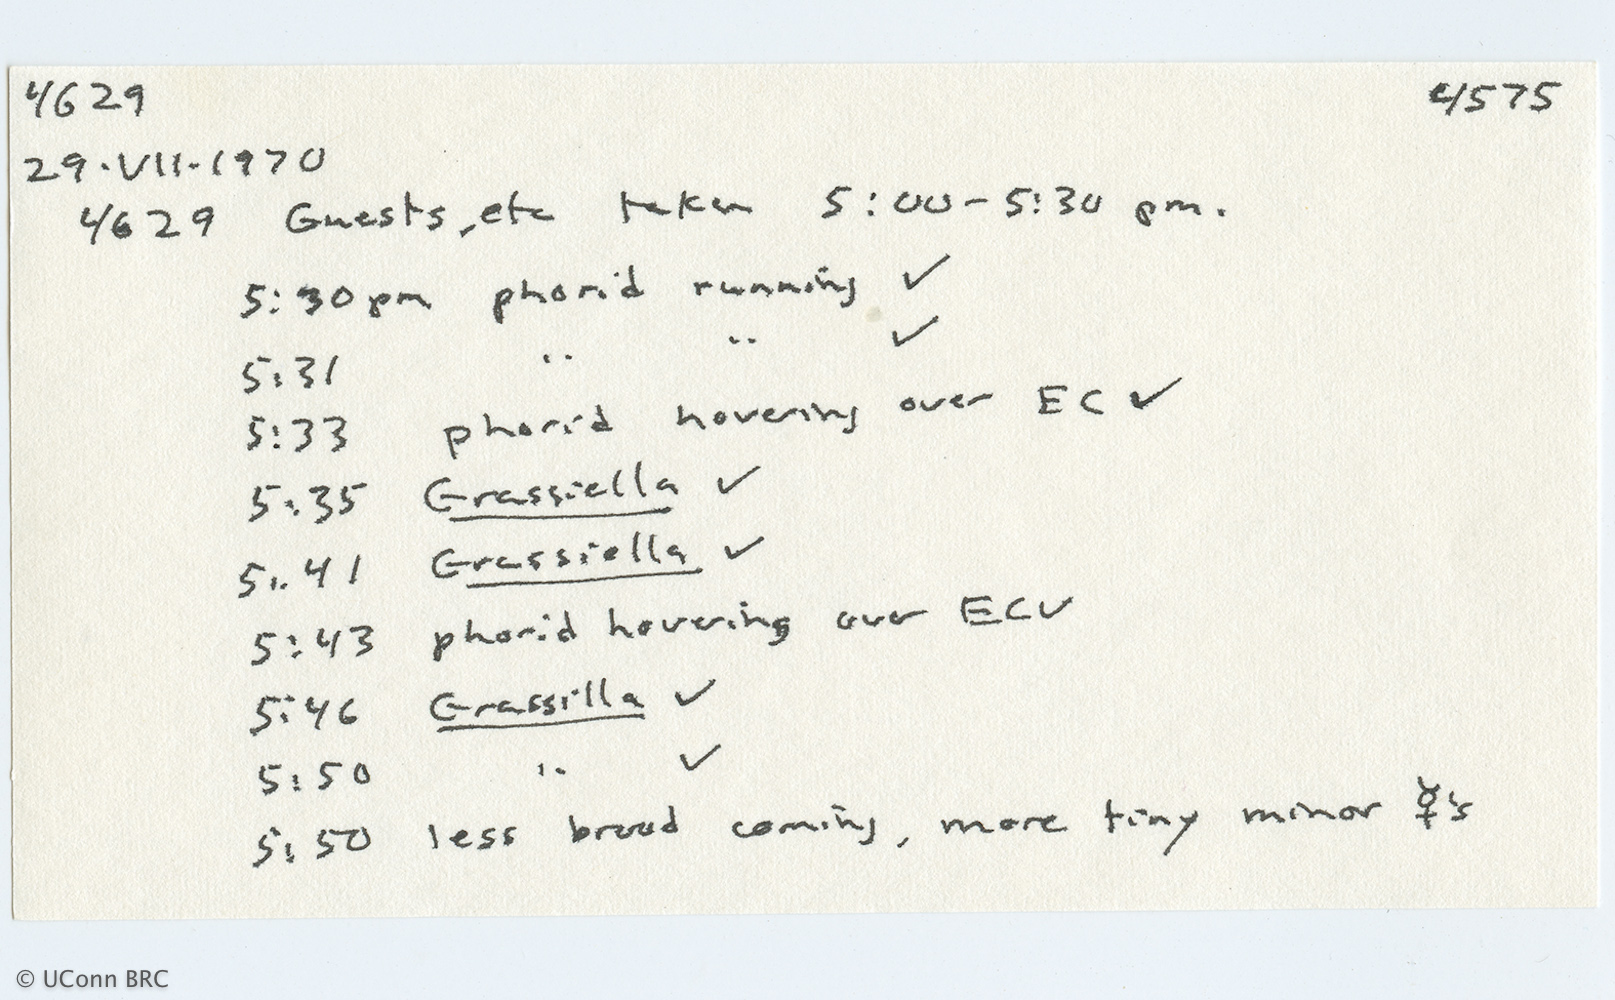 4629 4575
29·VII·1970
4629 Guests, etc taken 5:00-5:30 pm.
5:30pm phorid running ✓
5:31 " " ✓
5:33 phorid hovering over EC ✓
5:35 Grassiella ✓
5:41 Grassiella ✓
5:43 phorid hovering over EC ✓
5:46 Grassilla ✓
5:50 " ✓
5:50 less brood coming, more tiny minor ☿'s
© UConn BRC